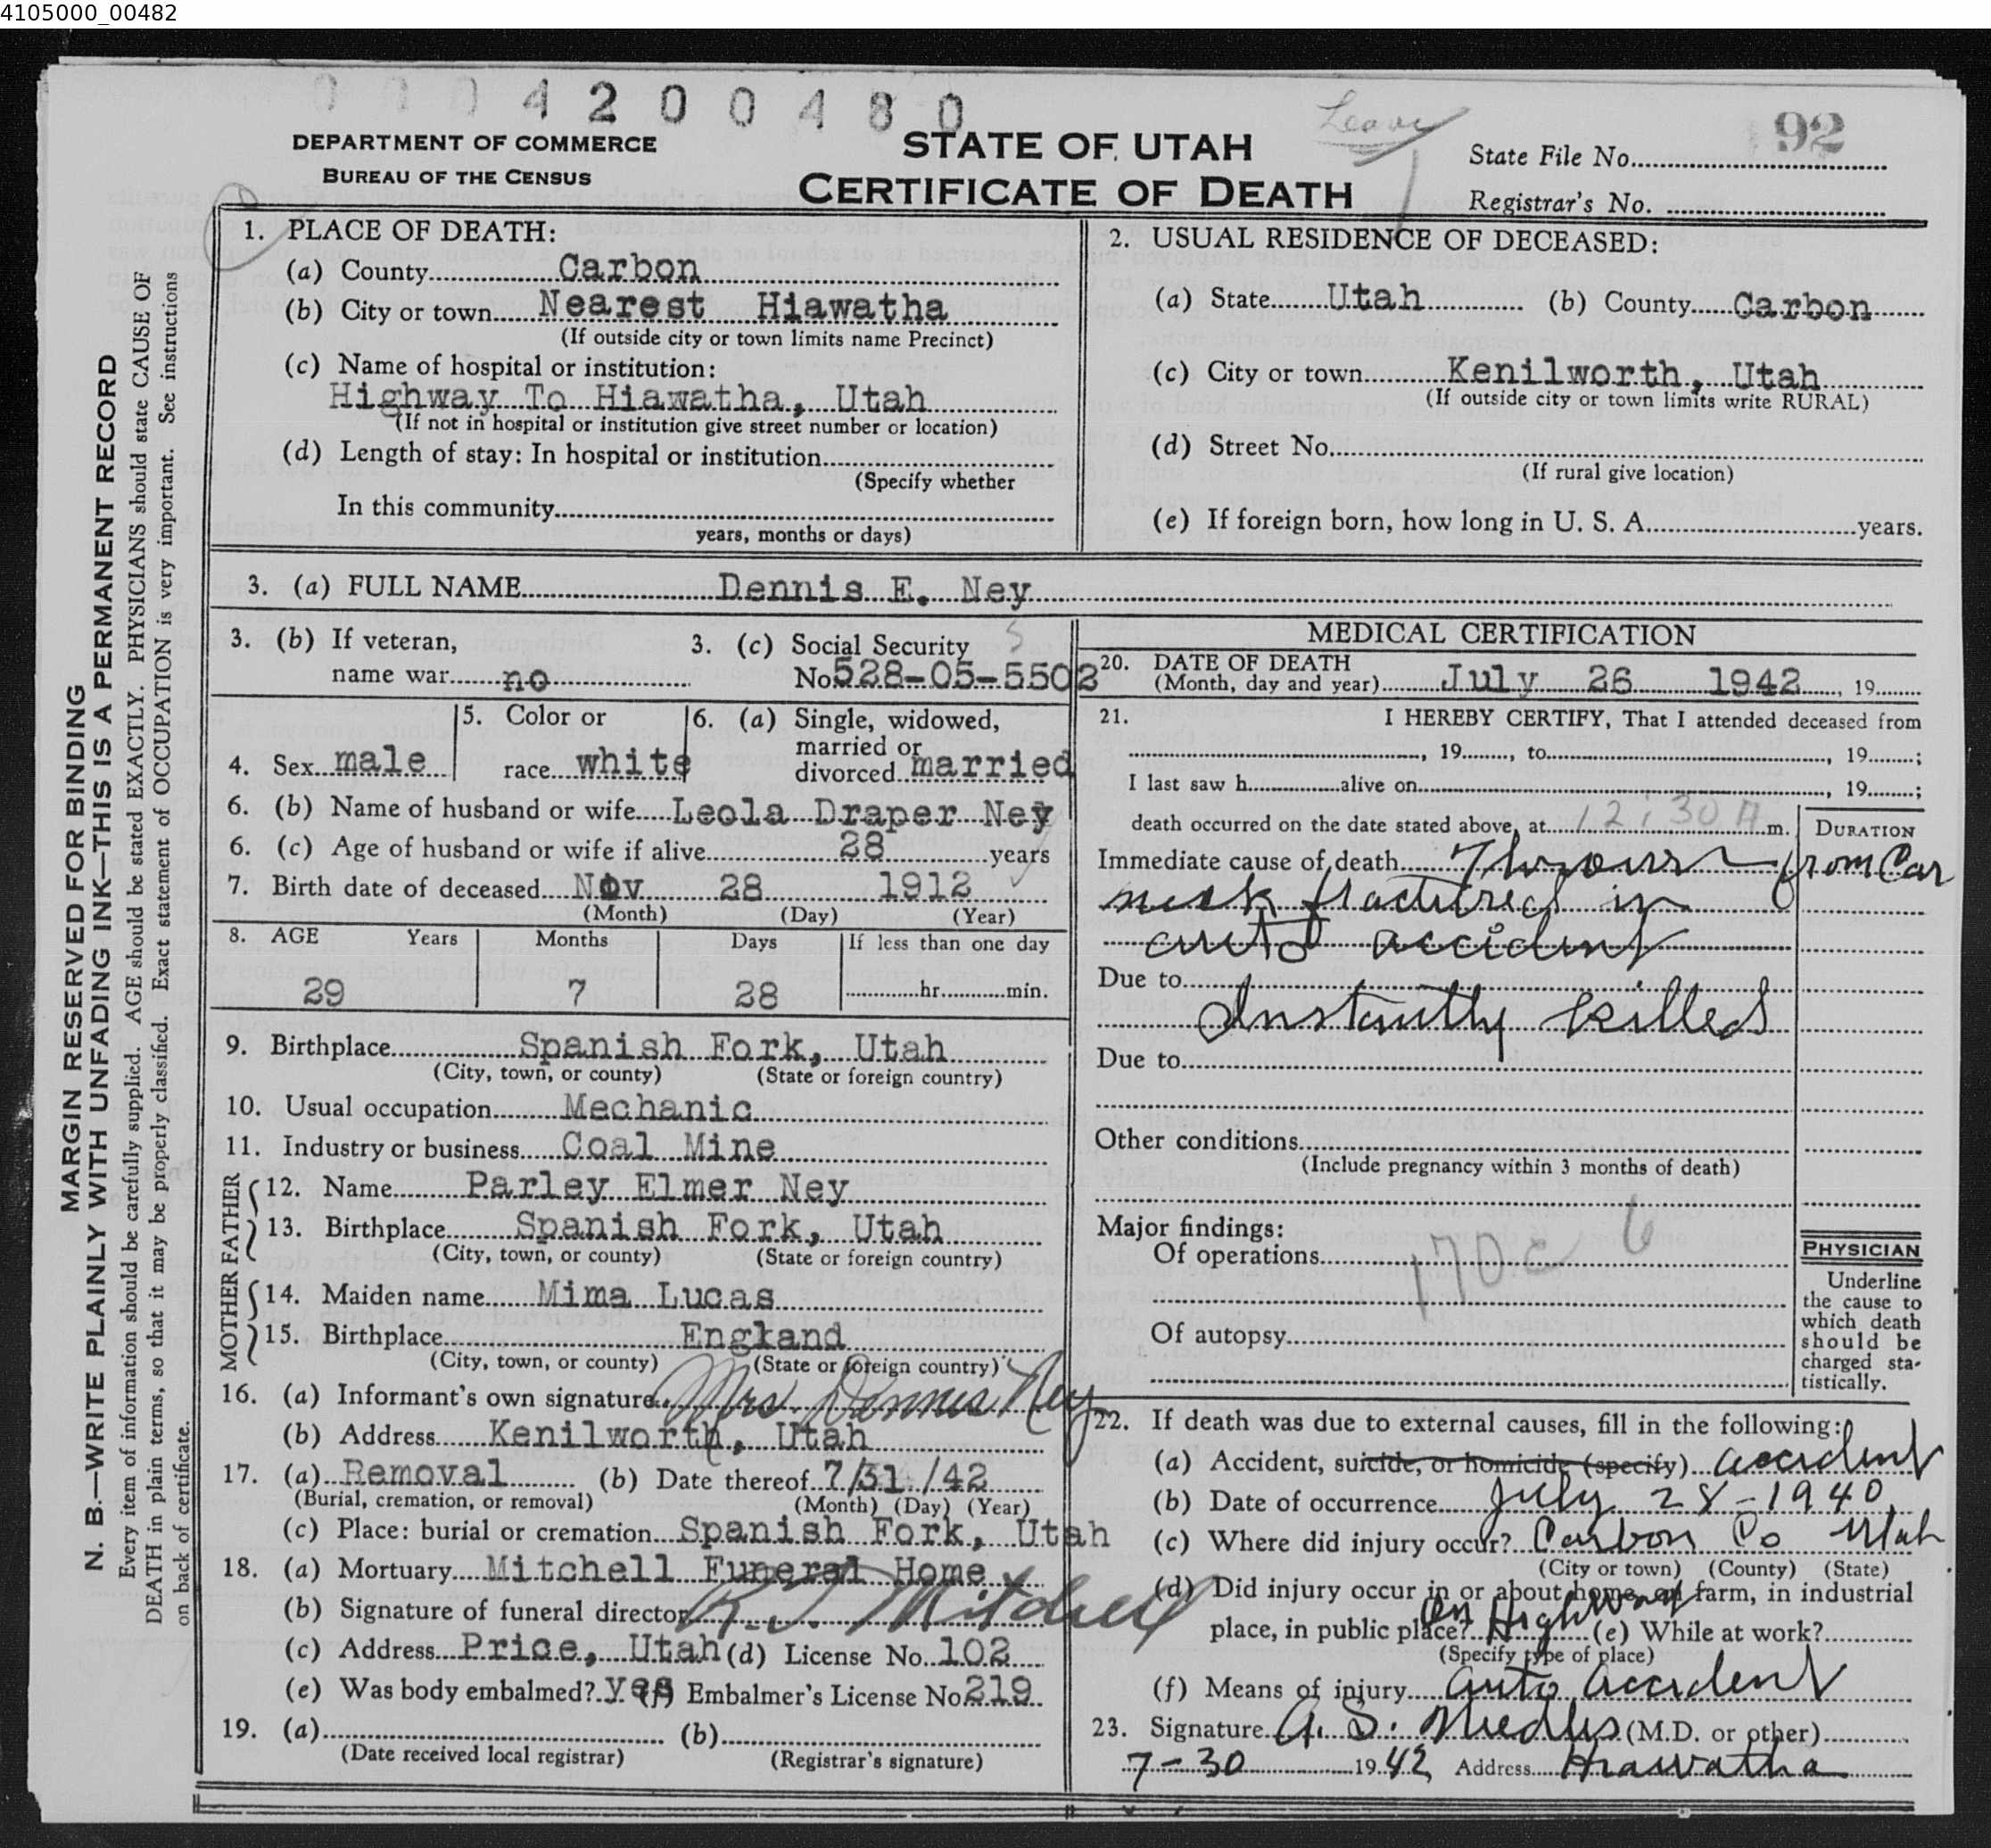 4105000_00482
0 0 0 4 2 0 0 4 8 0
Leave
92
DEPARTMENT OF COMMERCE
BUREAU OF THE CENSUS
STATE OF UTAH
CERTIFICATE OF DEATH
State File No.
Registrar's No.
MARGIN RESERVED FOR BINDING
N. B.—WRITE PLAINLY WITH UNFADING INK—THIS IS A PERMANENT RECORD
Every item of information should be carefully supplied. AGE should be stated EXACTLY. PHYSICIANS should state CAUSE OF
DEATH in plain terms, so that it may be properly classified. Exact statement of OCCUPATION is very important. See instructions
on back of certificate.
1. PLACE OF DEATH:
(a) County Carbon
(b) City or town Nearest Hiawatha
(If outside city or town limits name Precinct)
(c) Name of hospital or institution:
Highway To Hiawatha, Utah
(If not in hospital or institution give street number or location)
(d) Length of stay: In hospital or institution
(Specify whether
In this community
years, months or days)
2. USUAL RESIDENCE OF DECEASED:
(a) State Utah (b) County Carbon
(c) City or town Kenilworth, Utah
(If outside city or town limits write RURAL)
(d) Street No.
(If rural give location)
(e) If foreign born, how long in U. S. A. years.
3. (a) FULL NAME Dennis E. Ney
3. (b) If veteran,
name war no
3. (c) Social Security
No. 528-05-5502
4. Sex male
5. Color or
race white
6. (a) Single, widowed,
married or
divorced married
6. (b) Name of husband or wife Leola Draper Ney
6. (c) Age of husband or wife if alive 28 years
7. Birth date of deceased Nov 28 1912
(Month) (Day) (Year)
8. AGE Years Months Days If less than one day
29 7 28 hr. min.
9. Birthplace Spanish Fork, Utah
(City, town, or county) (State or foreign country)
10. Usual occupation Mechanic
11. Industry or business Coal Mine
FATHER
12. Name Parley Elmer Ney
13. Birthplace Spanish Fork, Utah
(City, town, or county) (State or foreign country)
MOTHER
14. Maiden name Mima Lucas
15. Birthplace England
(City, town, or county) (State or foreign country)
16. (a) Informant's own signature Mrs Dennis Ney
(b) Address Kenilworth, Utah
17. (a) Removal (b) Date thereof 7/31/42
(Burial, cremation, or removal) (Month) (Day) (Year)
(c) Place: burial or cremation Spanish Fork, Utah
18. (a) Mortuary Mitchell Funeral Home
(b) Signature of funeral director Mitchell
(c) Address Price, Utah (d) License No. 102
(e) Was body embalmed? yes (f) Embalmer's License No. 219
19. (a) (b)
(Date received local registrar) (Registrar's signature)
MEDICAL CERTIFICATION
20. DATE OF DEATH
(Month, day and year) July 26 1942, 19
21. I HEREBY CERTIFY, That I attended deceased from
, 19 , to , 19 ;
I last saw h alive on , 19 ;
death occurred on the date stated above, at 12:30 A m.
DURATION
Immediate cause of death Thrown from Car
neck fractured in
auto accident
Due to
Instantly killed
Due to
Other conditions
(Include pregnancy within 3 months of death)
Major findings:
Of operations
170c 6
Of autopsy
PHYSICIAN
Underline
the cause to
which death
should be
charged sta-
tistically.
22. If death was due to external causes, fill in the following:
(a) Accident, suicide, or homicide (specify) accident
(b) Date of occurrence July 28-1940
(c) Where did injury occur? Carbon Co Utah
(City or town) (County) (State)
(d) Did injury occur in or about home, on farm, in industrial
place, in public place? On Highway (e) While at work?
(Specify type of place)
(f) Means of injury auto accident
23. Signature (M.D. or other)
7-30 1942 Address Hiawatha